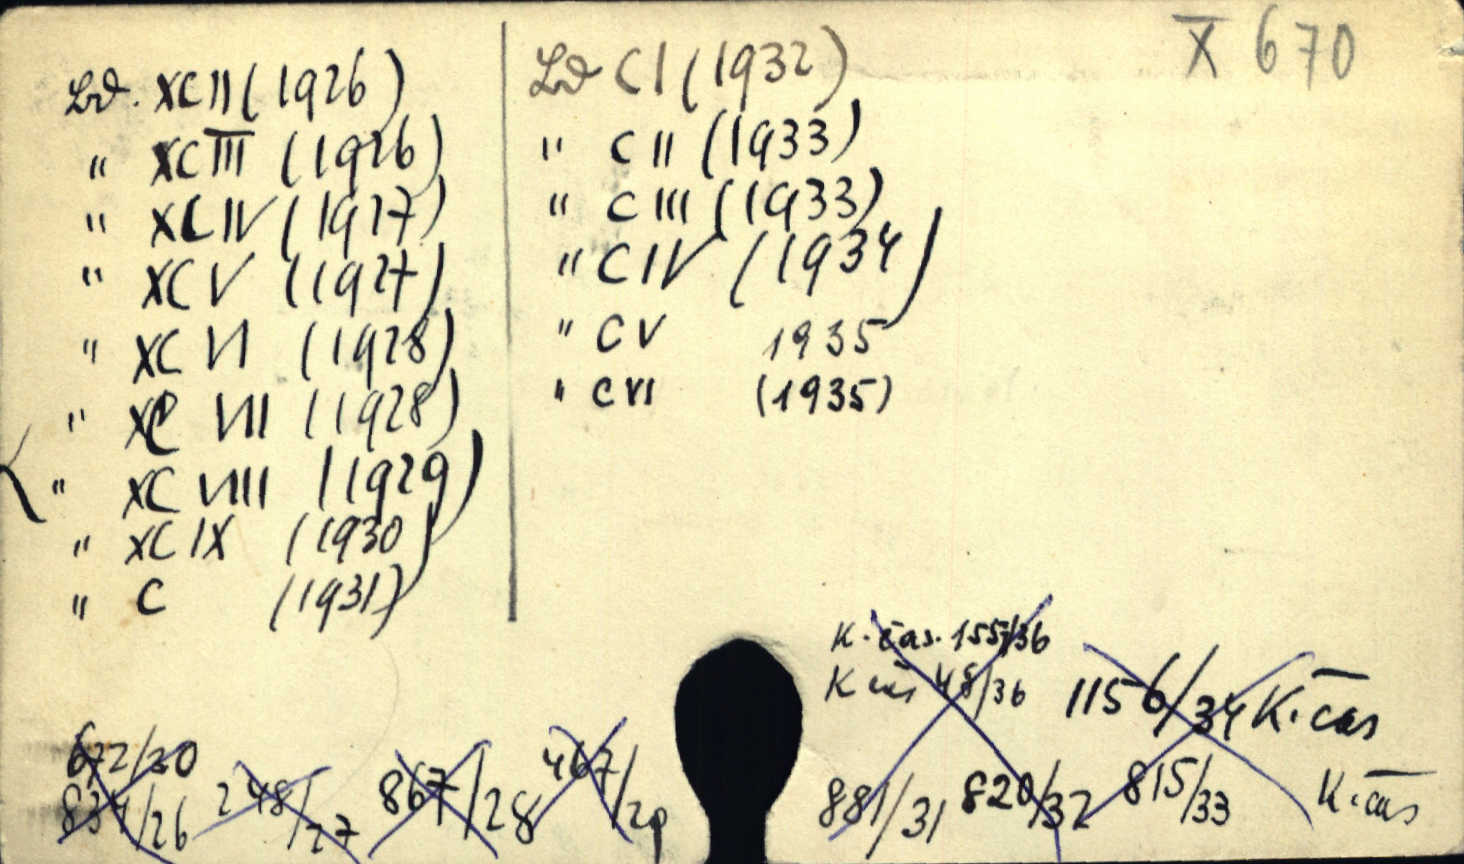 X 670
Bd. XCII (1926)
" XCIII (1926)
" XCIV (1927)
" XCV (1927)
" XCVI (1928)
" XCVII (1928)
" XCVIII (1929)
" XCIX (1930)
" C (1931)
Bd CI (1932)
" CII (1933)
" CIII (1933)
" CIV (1934)
" CV 1935
" CVI (1935)
K. čas. 155/36
K čas 48/36
1156/34 K. čas
672/30
834/26 248/27 867/28 467/29
881/31 820/32 815/33 K. čas